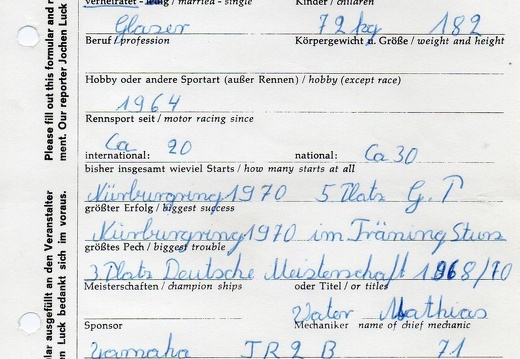 verheiratet - ledig / married - single Kinder / children
Glaser 72 kg 182
Beruf / profession Körpergewicht u. Größe / weight and height
Hobby oder andere Sportart (außer Rennen) / hobby (except race)
1964
Rennsport seit / motor racing since
international: Ca 20 national: Ca 30
bisher insgesamt wieviel Starts / how many starts at all
Nürburgring 1970 5 Platz G.P
größter Erfolg / biggest sucess
Nürburgring 1970 im Träning Sturz
größtes Pech / biggest trouble
3 Platz Deutsche Meisterschaft 1968/70
Meisterschaften / champion ships oder Titel / or titles
Vater Mathias
Sponsor Mechaniker name of chief mechanic
Yamaha TR 2 B 71
Please fill out this formular and r
ment. Our reporter Jochen Luck
lar ausgefüllt an den Veranstalter
en Luck bedankt sich im voraus.